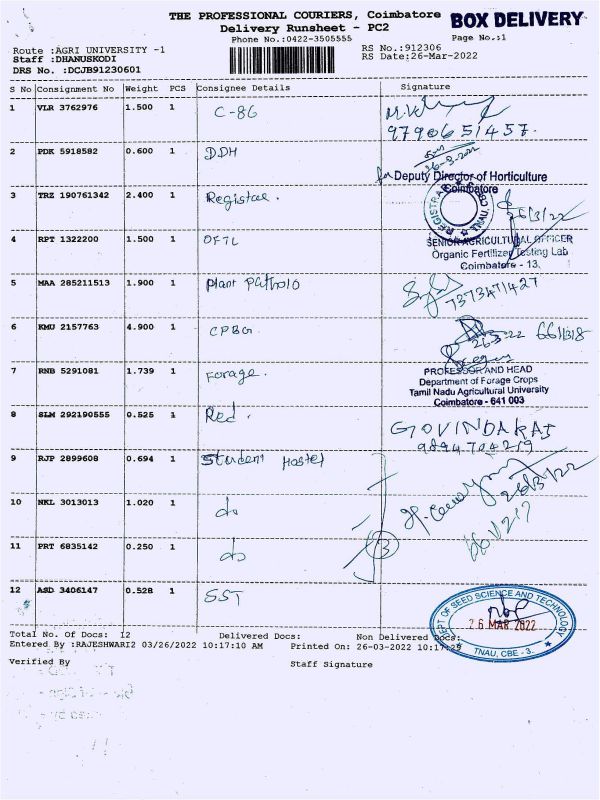 THE PROFESSIONAL COURIERS, Coimbatore BOX DELIVERY
Delivery Runsheet - PC2
Phone No.:0422-3505555 Page No.:1
Route :AGRI UNIVERSITY -1 RS No.:912306
Staff :DHANUSKODI RS Date:26-Mar-2022
DRS No. :DCJB91230601
S No Consignment No Weight PCS Consignee Details Signature
1 VLR 3762976 1.500 1 C-86
9790651457.
2 PDK 5918582 0.600 1 DDH
26-3-2022
for Deputy Director of Horticulture
Coimbatore
3 TRZ 190761342 2.400 1 Registrar.
REGISTRAR TNAU, CBE
26/3/22
4 RPT 1322200 1.500 1 OFTL
SENIOR AGRICULTURAL OFFICER
Organic Fertilizer Testing Lab
Coimbatore - 13.
5 MAA 285211513 1.900 1 Plant Patholo
7373471427
6 KMU 2157763 4.900 1 CPBG.
26.3.22 6611318
7 RNB 5291081 1.739 1 Forage.
PROFESSOR AND HEAD
Department of Forage Crops
Tamil Nadu Agricultural University
Coimbatore - 641 003
8 SLM 292190555 0.525 1 Red.
GOVINDARAJ
9894704219
9 RJP 2899608 0.694 1 Student Hostel
26/3/22
10 NKL 3013013 1.020 1 do
11 PRT 6835142 0.250 1 do
3
12 ASD 3406147 0.528 1 SST
DEPT OF SEED SCIENCE AND TECHNOLOGY
26 MAR 2022
TNAU, CBE - 3.
Total No. Of Docs: 12 Delivered Docs: Non Delivered Docs:
Entered By :RAJESHWARI2 03/26/2022 10:17:10 AM Printed On: 26-03-2022 10:17:29
Verified By Staff Signature